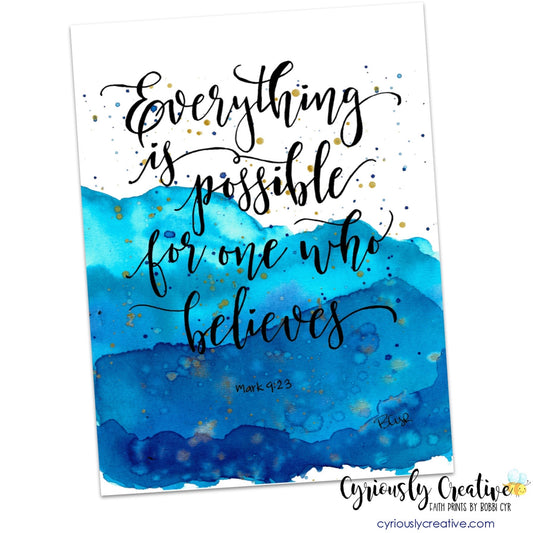 Everything
is
possible
for one who
believes
mark 9:23
BCyR
Cyriously Creative
FAITH PRINTS BY BOBBI CYR
cyriouslycreative.com